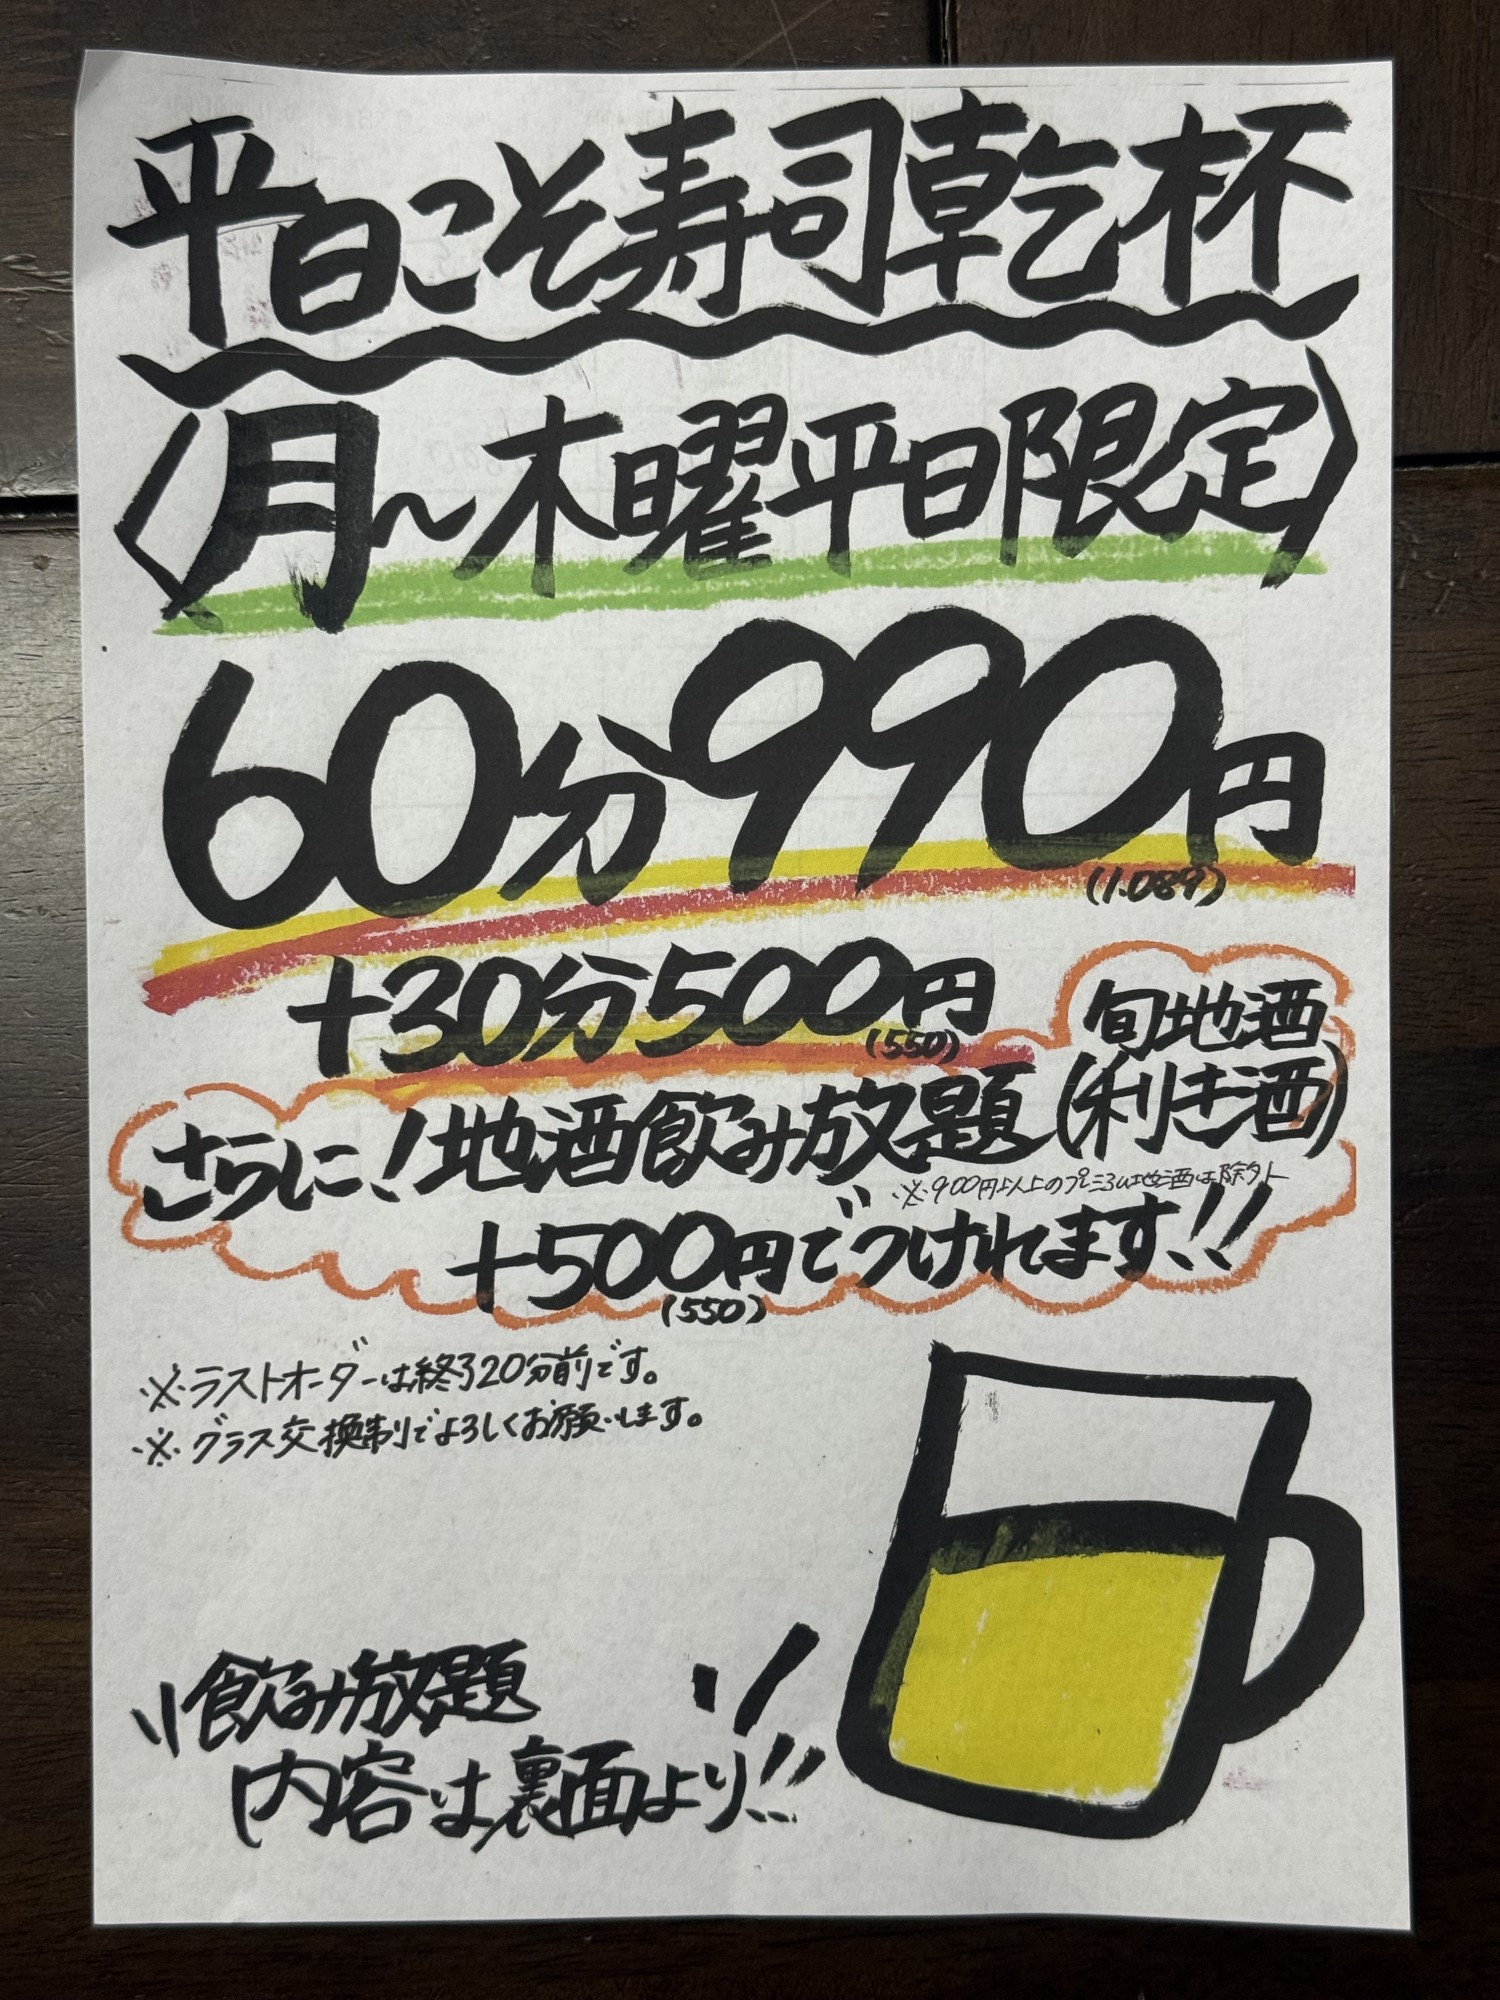 平日こそ寿司乾杯
〈月〜木曜平日限定〉
60分990円
(1.089)
+30分500円
(550)
旬地酒
さらに!地酒飲み放題(利き酒)
※900円以上のプレミアム地酒は除外
+500円でつけれます!!
(550)
※ラストオーダーは終了20分前です。
※グラス交換制でよろしくお願いします。
飲み放題
内容は裏面より!!